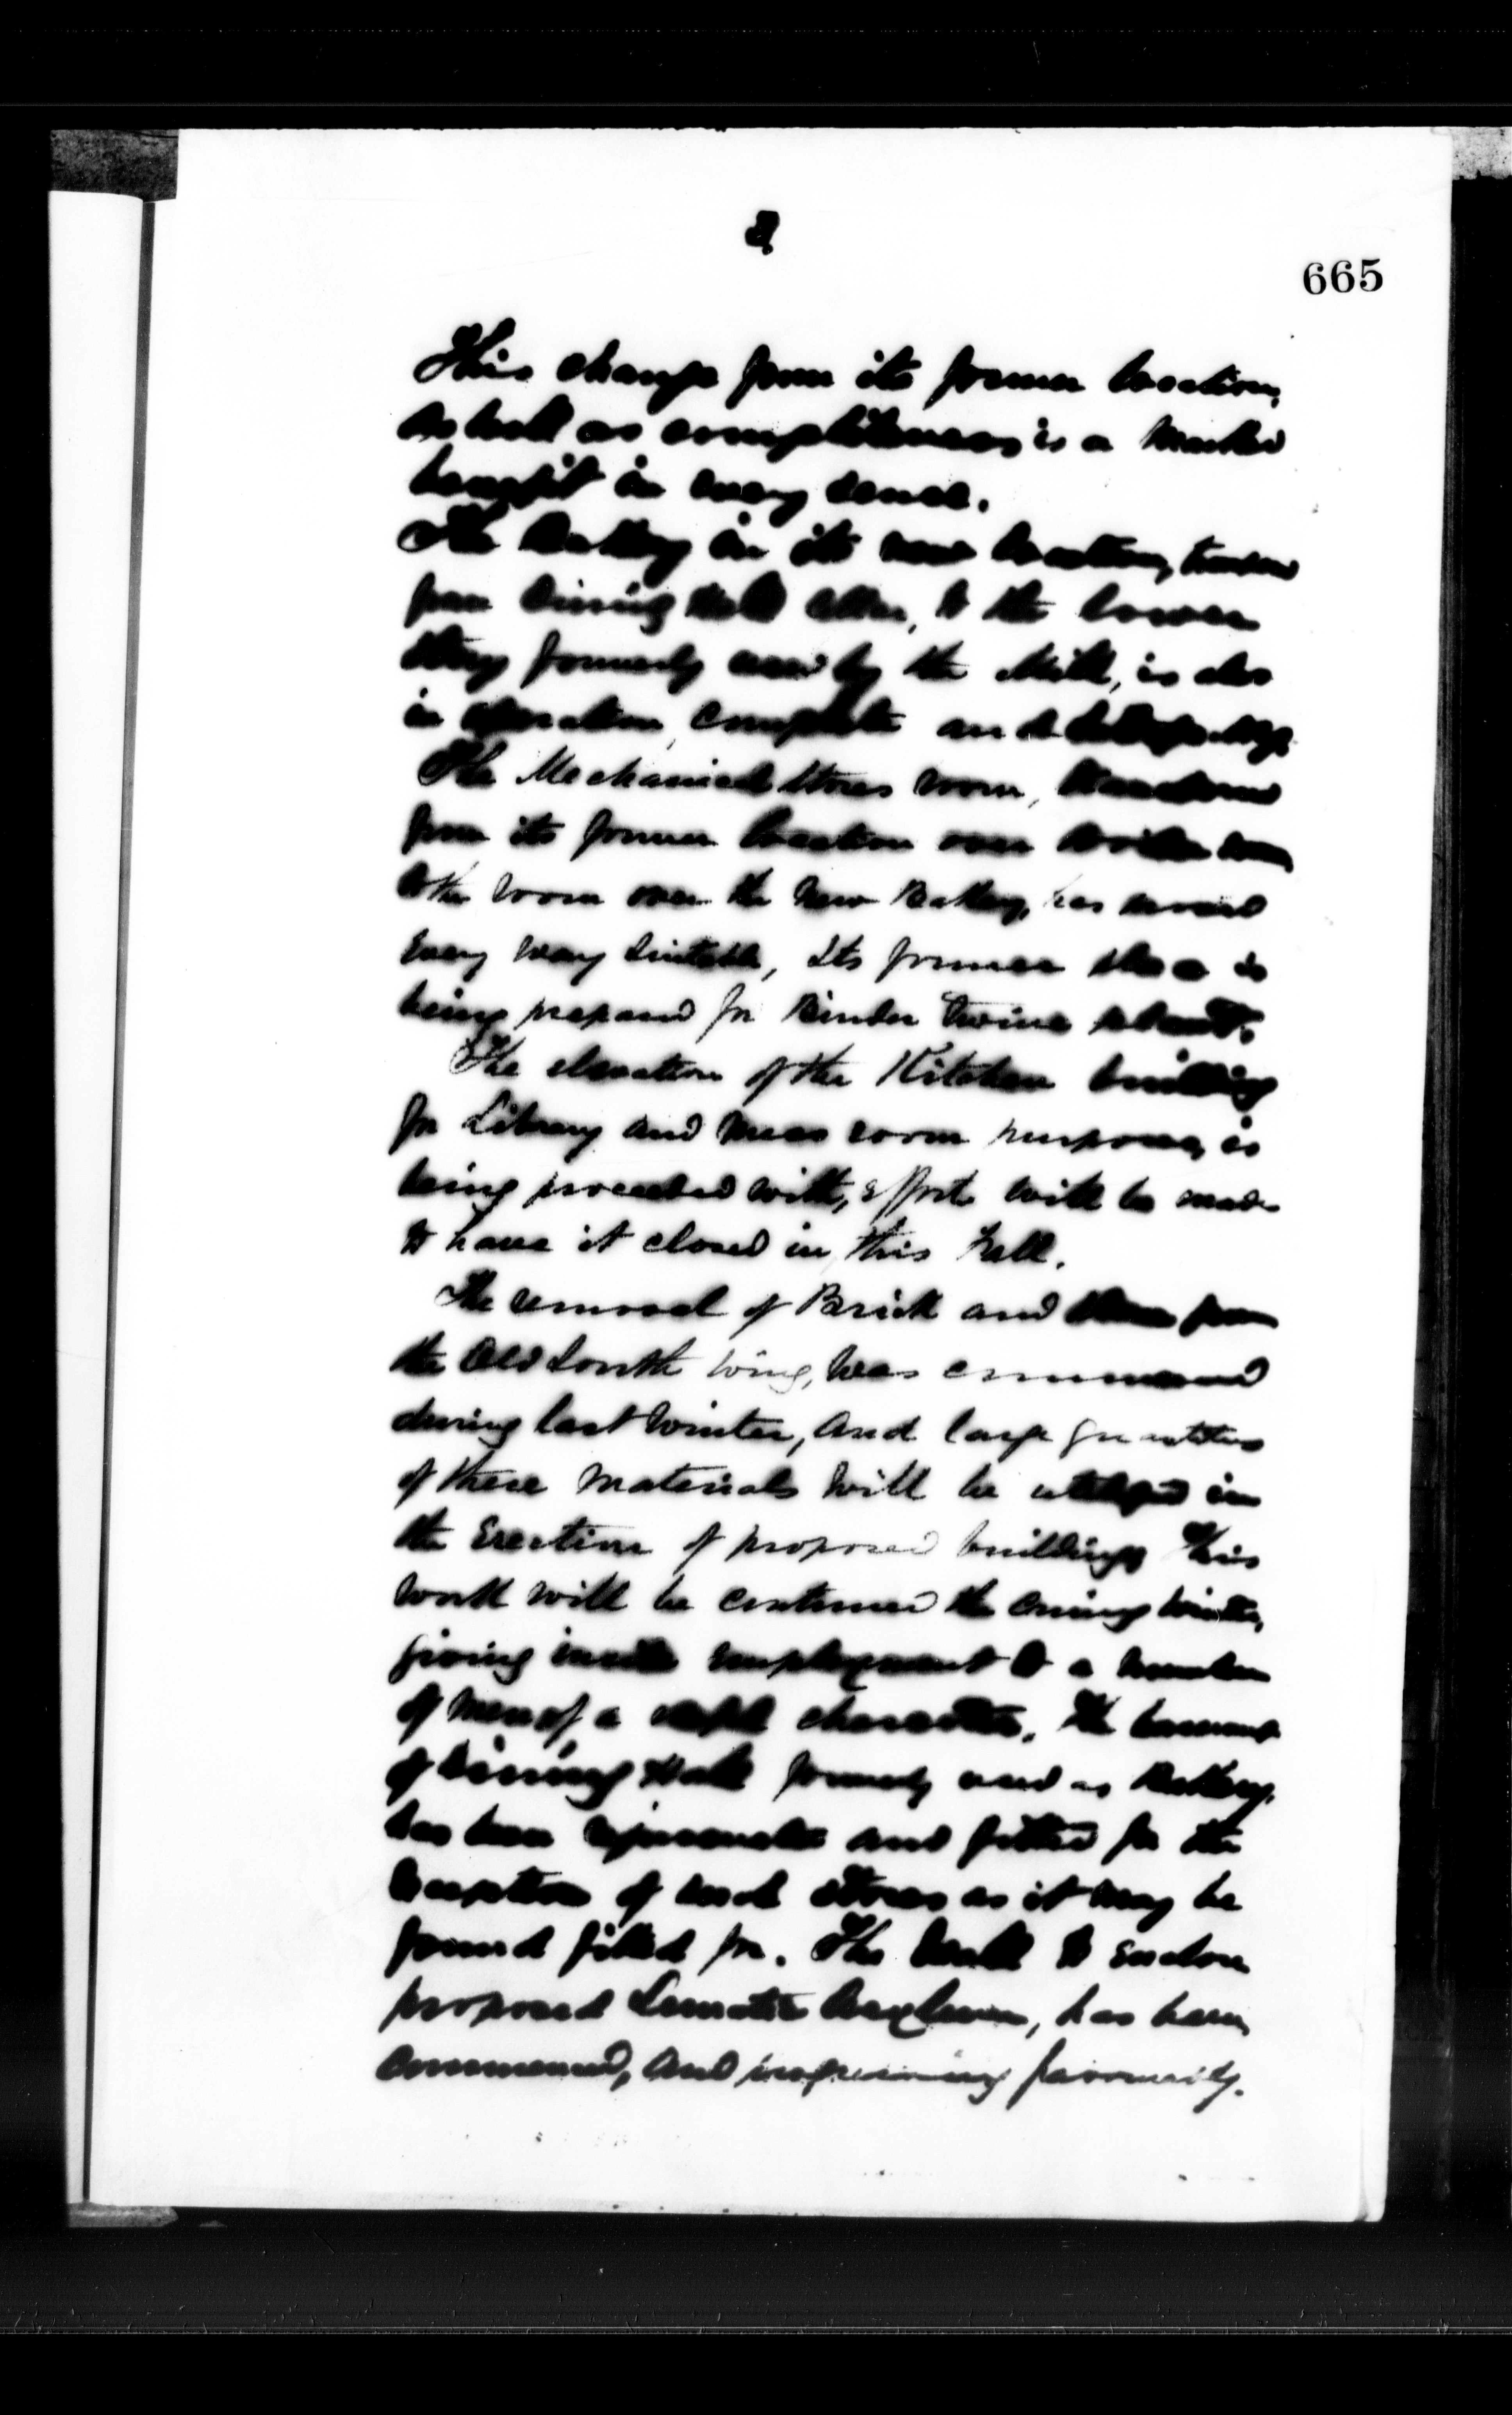 665
This change from its former location,
as well as completeness is a marked
benefit in every sense.
The Bakery in its new location,
from Dining Hall cellar, to the lower
story formerly used by the Mill, is also
in operation, complete and
The Mechanical Stores room,
from its former location over
to the room over the new Bakery, has
every way suitable, its former is
being prepared for Binder Twine plant.
The elevation of the Kitchen building
for Library and mess room purposes, is
being proceeded with, effort will be made
to have it closed in this Fall.
The removal of Brick and stone from
the Old South wing, was commenced
during last winter, and large quantities
of these materials will be utilized in
the Erection of proposed buildings This
work will be continued the coming winter,
giving inside employment to a number
of men of a useful character. The basement
of Dining Hall formerly used as Bakery,
has been and fitted for the
reception of such stores as it may be
found fitted for. The wall to enclose
proposed Lunatic Asylum, has been
commenced, and favourably.